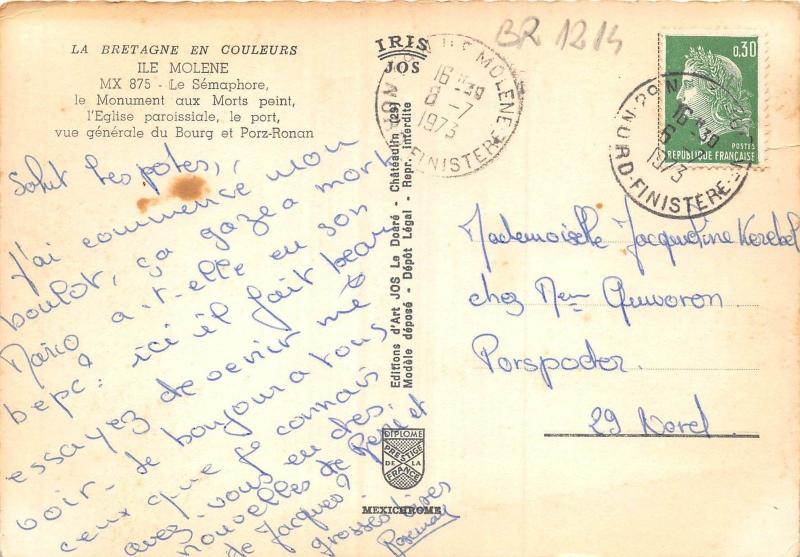 LA BRETAGNE EN COULEURS
ILE MOLENE
MX 875 - Le Sémaphore,
le Monument aux Morts peint,
l'Eglise paroissiale, le port,
vue générale du Bourg et Porz-Ronan
IRIS
JOS
BR 1214
ILE MOLENE
16 H 30
8 - 7
1973
NORD-FINISTERE
0,30
POSTES
REPUBLIQUE FRANÇAISE
29 N
16 H 30
1973
NORD-FINISTERE
Salut les potes,
J'ai commencé mon
boulot, ça gaze a mort
Mario a-t-elle eu son
bepc? ici il fait beau
essayez de venir me
voir. le bonjour a tous
ceux que je connais
avez-vous eu des
nouvelles de et
de Jacques?
grosses bises
Editions d'Art JOS Le Doaré - Châteaulin (29)
Modèle déposé - Dépôt Légal - Repr. interdite
DIPLOME
PRESTIGE
DE LA
FRANCE
MEXICHROME
Mademoiselle Jacqueline Kerebel
chez
Porspoder
29 Nord